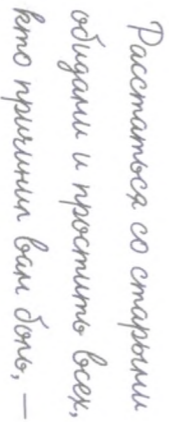 Расстаться со старыми
обидами и простить всех,
кто причинил вам боль, —